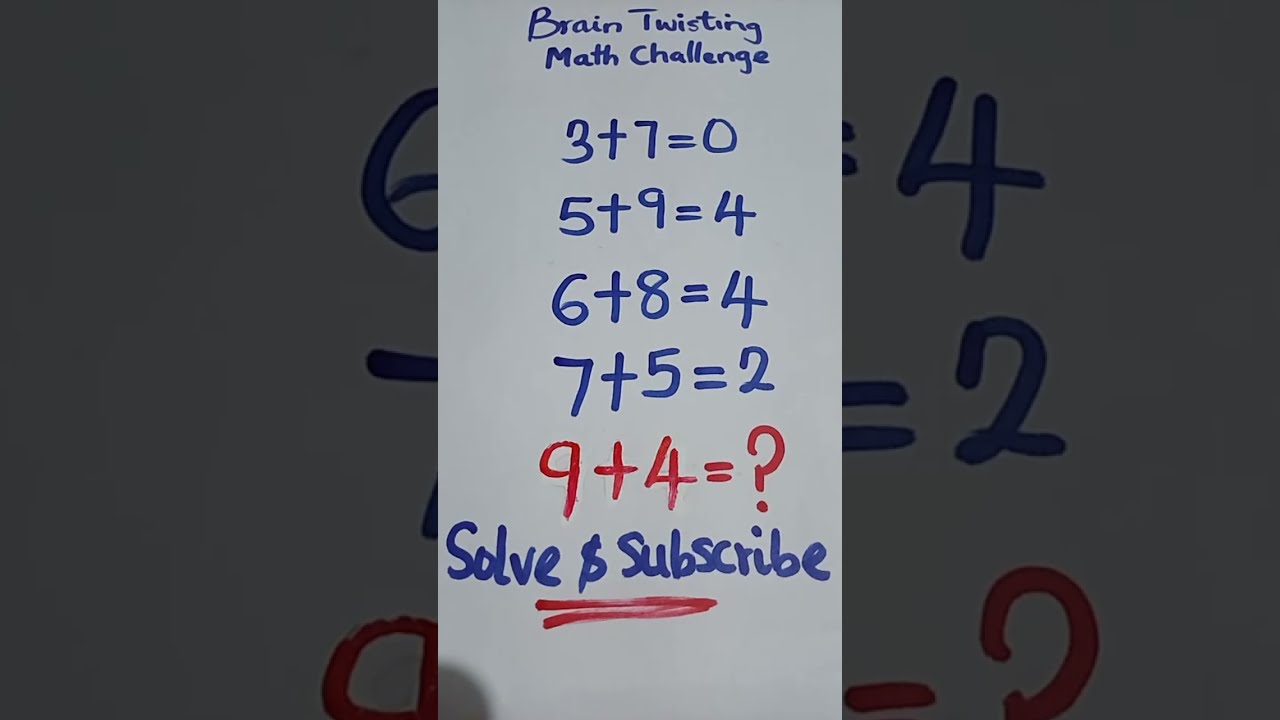 Brain Twisting
Math Challenge
3+7=0
5+9=4
6+8=4
7+5=2
9+4=?
Solve & Subscribe